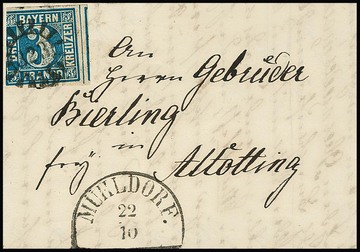 BAYERN
3
KREUZER
FRANCO
An
Herrn Gebrüder
Bierling
in
Altötting
MÜHLDORF.
22
10